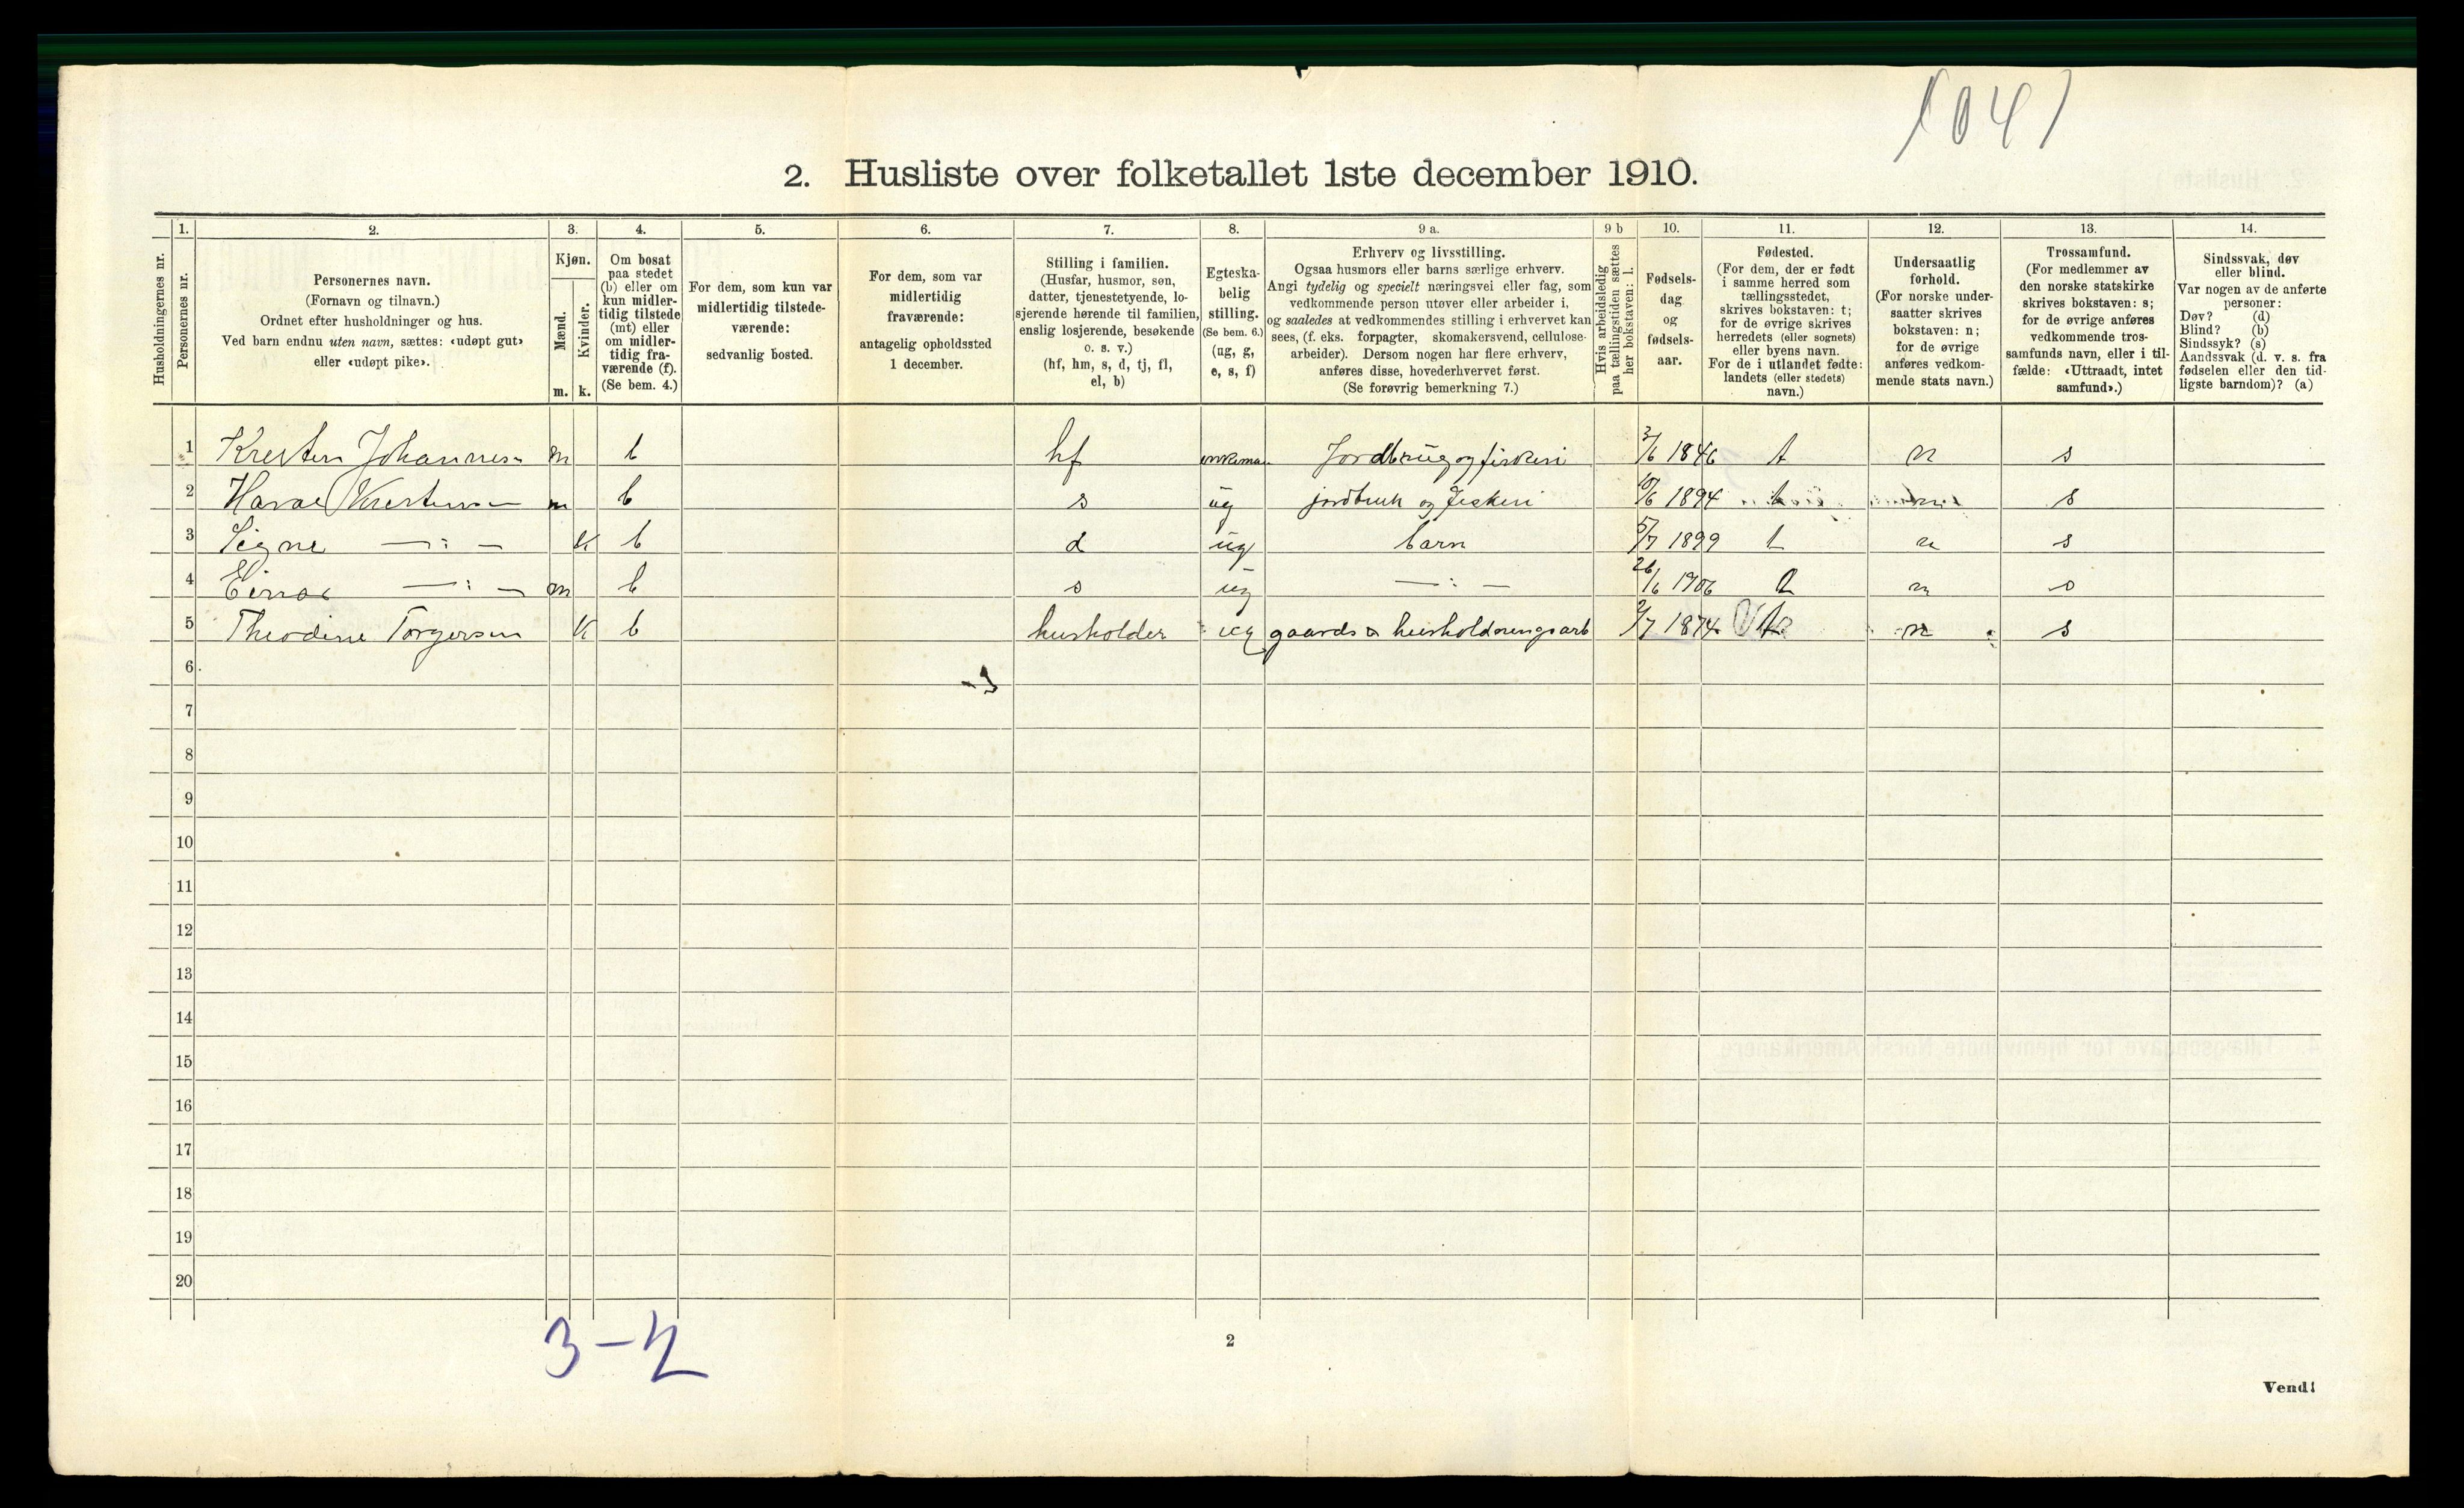 1041
2. Husliste over folketallet 1ste december 1910.
Husholdningernes nr.
1.
Personernes nr.
2.
Personernes navn.
(Fornavn og tilnavn.)
Ordnet efter husholdninger og hus.
Ved barn endnu uten navn, sættes: «udøpt gut»
eller «udøpt pike».
3.
Kjøn.
Mænd.
Kvinder.
m. k.
4.
Om bosat
paa stedet
(b) eller om
kun midler-
tidig tilstede
(mt) eller
om midler-
tidig fra-
værende (f).
(Se bem. 4.)
5.
For dem, som kun var
midlertidig tilstede-
værende:
sedvanlig bosted.
6.
For dem, som var
midlertidig
fraværende:
antagelig opholdssted
1 december.
7.
Stilling i familien.
(Husfar, husmor, søn,
datter, tjenestetyende, lo-
sjerende hørende til familien,
enslig losjerende, besøkende
o. s. v.)
(hf, hm, s, d, tj, fl,
el, b)
8.
Egteska-
belig
stilling.
(Se bem. 6.)
(ug, g,
e, s, f)
9 a.
Erhverv og livsstilling.
Ogsaa husmors eller barns særlige erhverv.
Angi tydelig og specielt næringsvei eller fag, som
vedkommende person utøver eller arbeider i,
og saaledes at vedkommendes stilling i erhvervet kan
sees, (f. eks. forpagter, skomakersvend, cellulose-
arbeider). Dersom nogen har flere erhverv,
anføres disse, hovederhvervet først.
(Se forøvrig bemerkning 7.)
9 b
Hvis arbeidsledig
paa tællingstiden sættes
her bokstaven: l.
10.
Fødsels-
dag
og
fødsels-
aar.
11.
Fødested.
(For dem, der er født
i samme herred som
tællingsstedet,
skrives bokstaven: t;
for de øvrige skrives
herredets (eller sognets)
eller byens navn.
For de i utlandet fødte:
landets (eller stedets)
navn.)
12.
Undersaatlig
forhold.
(For norske under-
saatter skrives
bokstaven: n;
for de øvrige
anføres vedkom-
mende stats navn.)
13.
Trossamfund.
(For medlemmer av
den norske statskirke
skrives bokstaven: s;
for de øvrige anføres
vedkommende tros-
samfunds navn, eller i til-
fælde: «Uttraadt, intet
samfund».)
14.
Sindssvak, døv
eller blind.
Var nogen av de anførte
personer:
Døv? (d)
Blind? (b)
Sindssyk? (s)
Aandssvak (d. v. s. fra
fødselen eller den tid-
ligste barndom)? (a)
1 Kresten Johannesn m b hf enkeman Jordbrug og fiskeri 3/6 1846 t n s
2 Harae Krestensen m b s ug jordbruk og fiskeri 10/6 1894 t n s
3 Signe —:— k b d ug barn 5/7 1899 t n s
4 Einar —:— m b s ug —:— 26/6 1906 t n s
5 Theodine Torgersen k b husholder ug gaards & husholdningsarb 2/7 1874 t n s
6
7
8
9
10
11
12
13
14
15
16
17
18
19
20
3-2
2
Vend!